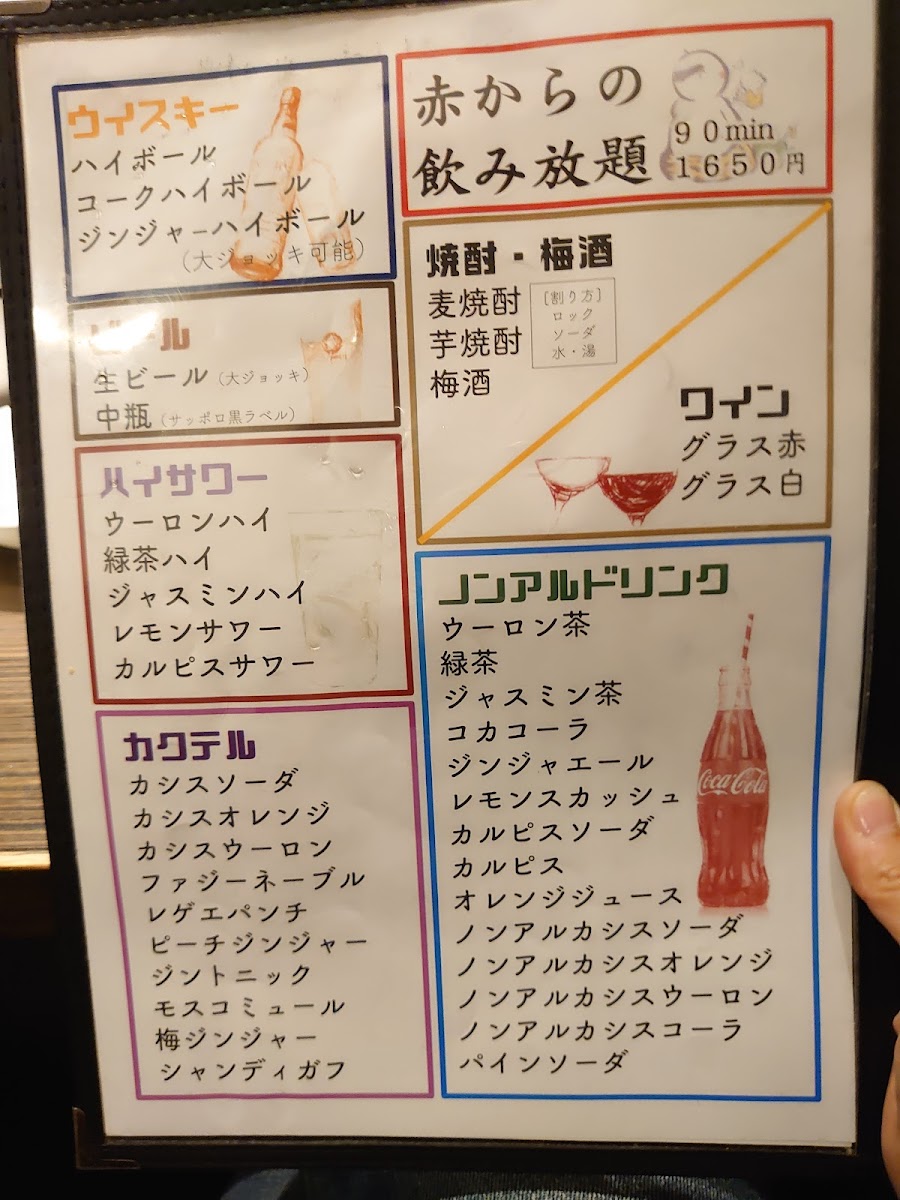 ウイスキー
ハイボール
コークハイボール
ジンジャーハイボール
(大ジョッキ可能)
ビール
生ビール(大ジョッキ)
中瓶(サッポロ黒ラベル)
ハイサワー
ウーロンハイ
緑茶ハイ
ジャスミンハイ
レモンサワー
カルピスサワー
カクテル
カシスソーダ
カシスオレンジ
カシスウーロン
ファジーネーブル
レゲエパンチ
ピーチジンジャー
ジントニック
モスコミュール
梅ジンジャー
シャンディガフ
赤からの
飲み放題
90min
1650円
焼酎・梅酒
麦焼酎
芋焼酎
梅酒
[割り方]
ロック
ソーダ
水・湯
ワイン
グラス赤
グラス白
ノンアルドリンク
ウーロン茶
緑茶
ジャスミン茶
コカコーラ
ジンジャエール
レモンスカッシュ
カルピスソーダ
カルピス
オレンジジュース
ノンアルカシスソーダ
ノンアルカシスオレンジ
ノンアルカシスウーロン
ノンアルカシスコーラ
パインソーダ
Coca-Cola